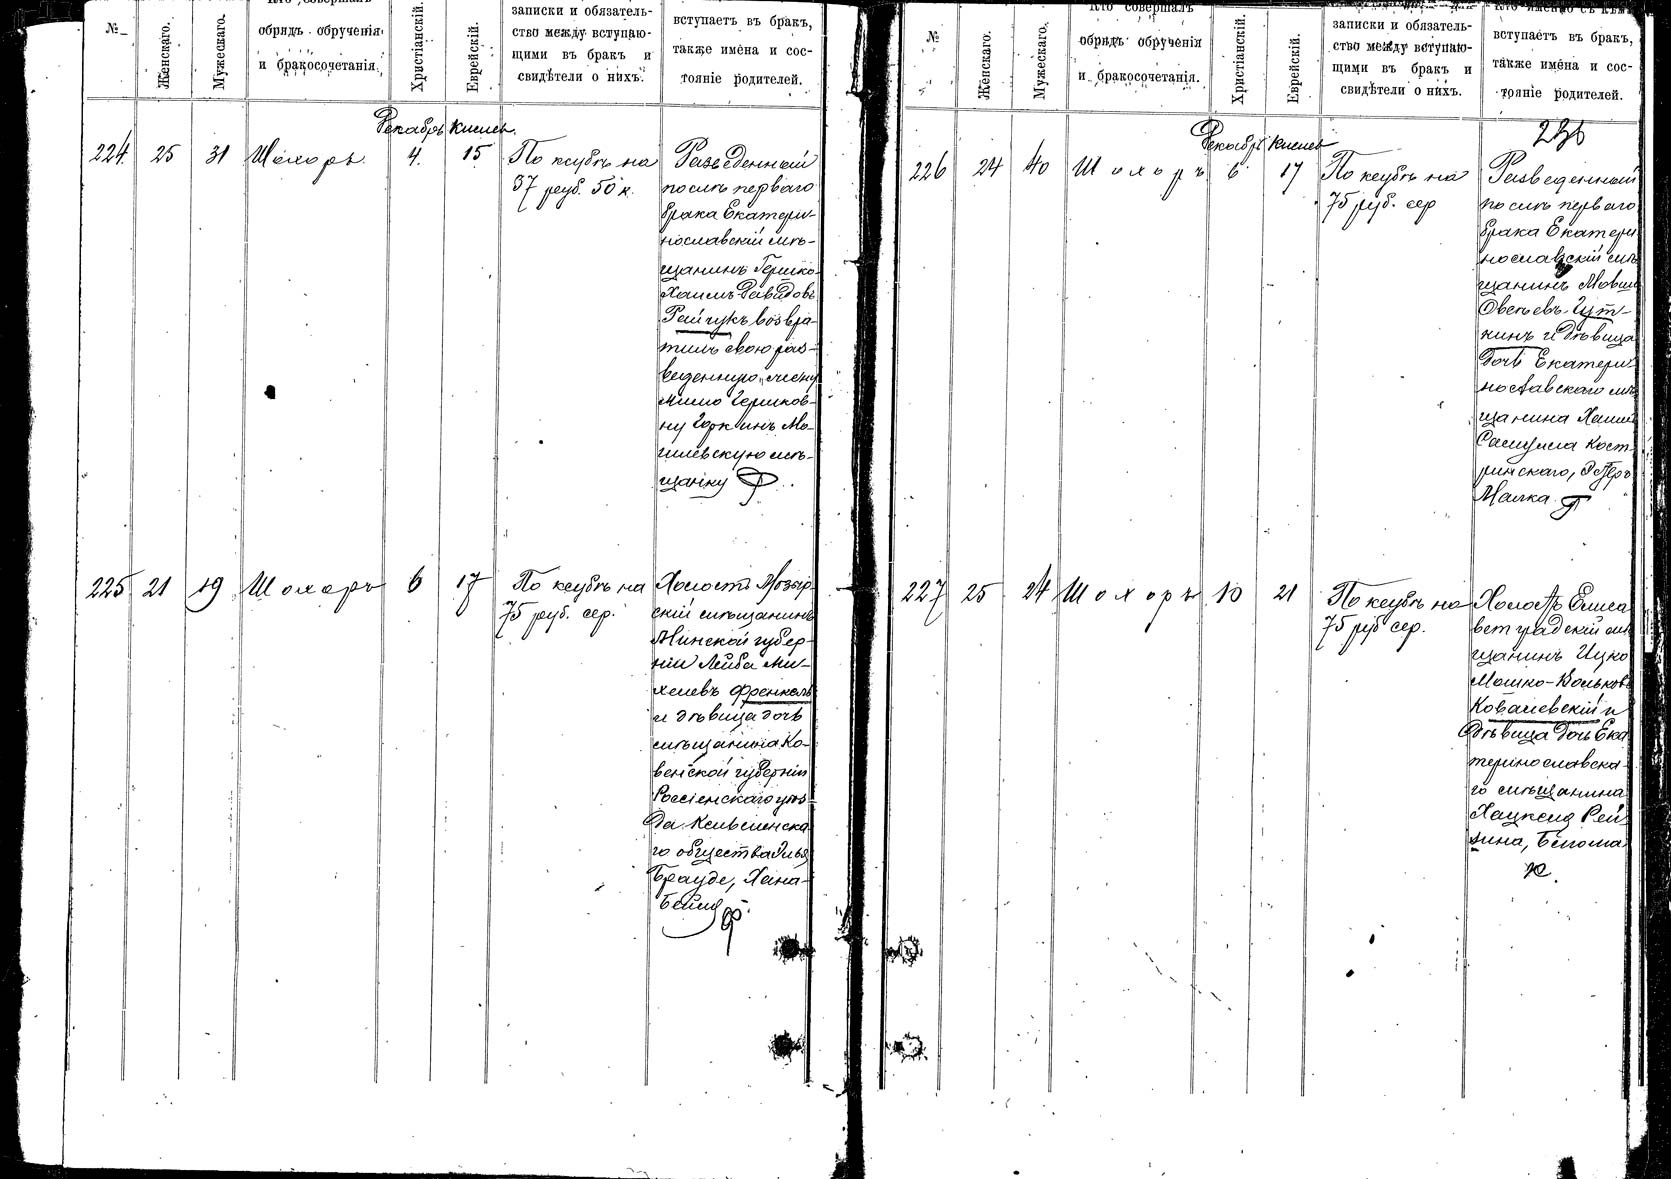 №
Женскаго.
Мужескаго.
Кто совершалъ
обрядъ обрученія
и бракосочетанія.
Христіанскій.
Еврейскій.
записки и обязатель-
ство между вступаю-
щими въ бракъ и
свидѣтели о нихъ.
вступаетъ въ бракъ,
также имена и сос-
тояніе родителей.
Декабрь Кислевъ
224 25 31 Шохоръ 4 15
По ксубѣ на
37 руб. 50 к.
Разведенный
послѣ перваго
брака Екатери-
нославскій мѣ-
щанинъ Гершко-
Хаимъ Давидовъ
Райчукъ возвра-
тилъ свою раз-
веденную жену
Гершков-
ну Горкинъ Мо-
гилевскую мѣ-
щанку
225 21 19 Шохоръ 6 17
По ксубѣ на
75 руб. сер.
Холостъ Мозыр-
скій мѣщанинъ
Минской губер-
ніи Лейба Ми-
хелевъ Френкель
и дѣвица дочь
мѣщанина Ко-
венской губерніи
Россіенскаго уѣз-
да
го общества Илья
Брауде, Хана-
Бейля
№
Женскаго.
Мужескаго.
Кто совершалъ
обрядъ обрученія
и бракосочетанія.
Христіанскій.
Еврейскій.
записки и обязатель-
ство между вступаю-
щими въ бракъ и
свидѣтели о нихъ.
Кто именно съ кѣмъ
вступаетъ въ бракъ,
также имена и сос-
тояніе родителей.
236
Декабрь Кислевъ
226 24 40 Шохоръ 6 17
По ксубѣ на
75 руб. сер
Разведенный
послѣ перваго
брака Екатери
нославскій мѣ
щанинъ Мовша
Овсѣевъ Гут-
кинъ и дѣвица
дочь Екатери-
нославскаго мѣ
щанина Хаима
Самуила Кост
ринскаго, Эстеръ
Малка
227 25 24 Шохоръ 10 21
По ксубѣ на
75 руб сер.
Холостъ Елиса
ветградскій мѣ
щанинъ Ицко
Мошко-Вольковъ
Ковалевскій и
дѣвица дочь Ека
теринославска-
го мѣщанина
Хацкеля Рей
зина, Блюма